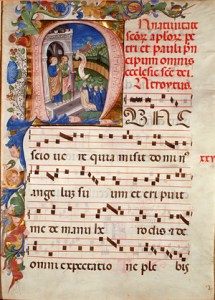 In natiuitat
scor aplor pe
tri et pauli prin
cipum omnis
ecclesie sce dei
Introytus
UNC
scio ue re quia misit do mi
ange lum su um et eri puit
me de manu he rodis et de
omni expectatio ne ple bis